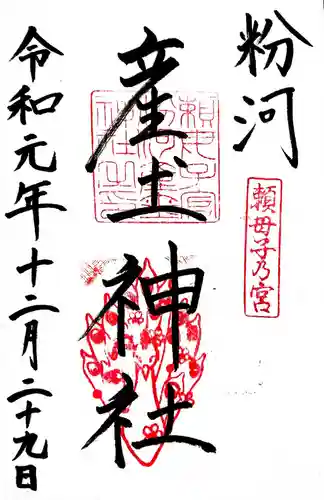 粉河
頼母子乃宮
産土神社
令和元年十二月二十九日